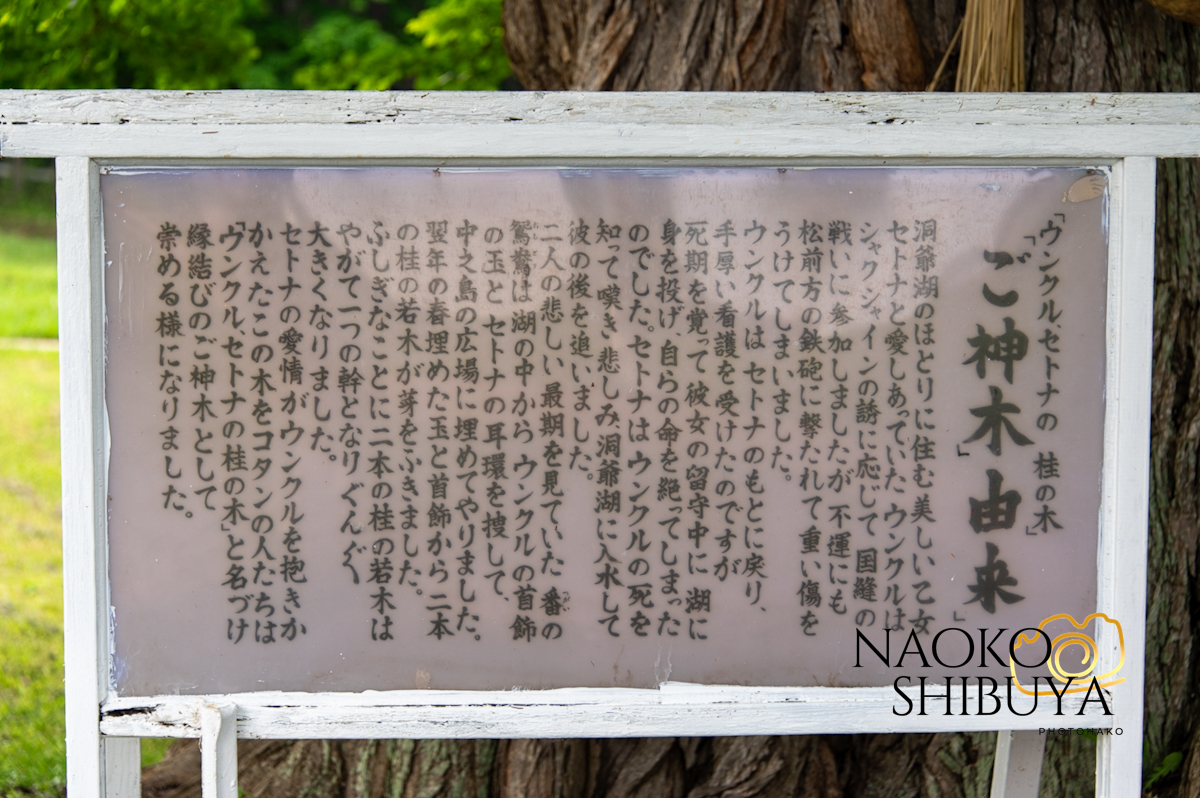 「ウンクル、セトナの 桂の木」
「ご神木」由来」
洞爺湖のほとりに住む美しい乙女
セトナと愛しあっていた ウンクルは
シャクシャインの誘に応じて 国縫の
戦いに参加しましたが 不運にも
松前方の鉄砲に撃たれて 重い傷を
うけてしまいました。
ウンクルは セトナのもとに戻り、
手厚い看護を受けたのですが
死期を覚って彼女の留守中に 湖に
身を投げ、自らの命を絶ってしまった
のでした。セトナは ウンクルの死を
知って嘆き悲しみ 洞爺湖に入水して
彼の後を追いました。
二人の悲しい最期を見ていた 番の
鴛鴦は湖の中から ウンクルの首飾
の玉と セトナの耳環を捜して、
中之島の広場に埋めてやりました。
翌年の春埋めた玉と首飾から 二本
の桂の若木が芽をふきました。
ふしぎなことに二本の桂の若木は
やがて一つの幹となり ぐんぐん
大きくなりました。
セトナの愛情が ウンクルを抱きか
かえたこの木を コタンの人たちは
「ウンクル、セトナの桂の木」と名づけ
縁結びのご神木として
崇める様になりました。
NAOKO
SHIBUYA
PHOTONAKO